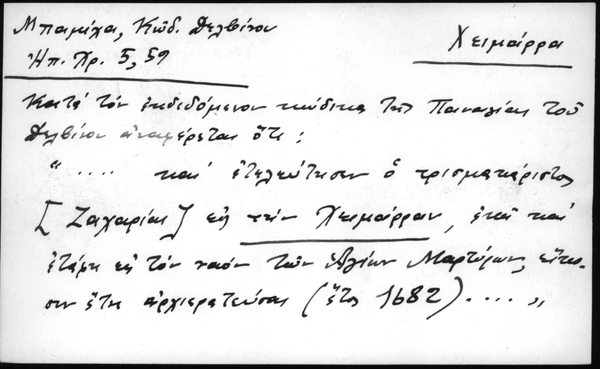 Μπαμίχα, Κώδ. Δελβίνου
Χειμάρρα
Ἠπ. Χρ. 5, 59
Κατά τόν ἐκδιδόμενον κώδικα τῆς Παναγίας τοῦ
Δελβίνου ἀναφέρεται ὅτι:
" .... καί ἐτελεύτησεν ὁ τρισμακάριστος
[Ζαχαρίας] εἰς τήν Χειμάρραν, ἐκεῖ καί
ἐτάφη εἰς τόν ναόν τῶν Ἁγίων Μαρτύρων, εἴκο-
σιν ἔτη ἀρχιερατεύσας (ἔτος 1682) .... "